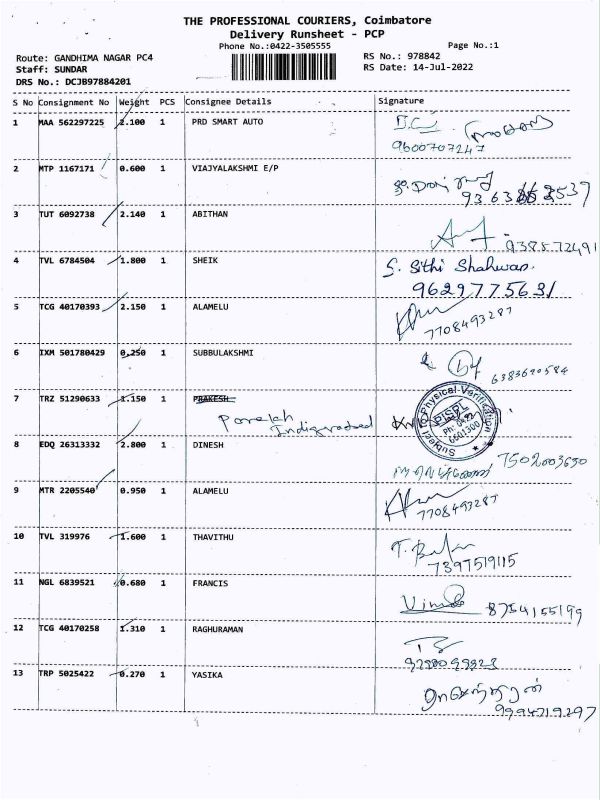 THE PROFESSIONAL COURIERS, Coimbatore
Delivery Runsheet - PCP
Phone No.:0422-3505555 Page No.:1
Route: GANDHIMA NAGAR PC4 RS No.: 978842
Staff: SUNDAR RS Date: 14-Jul-2022
DRS No.: DCJB97884201
S No Consignment No Weight PCS Consignee Details Signature
1 MAA 562297225 2.100 1 PRD SMART AUTO
9600707247
2 MTP 1167171 0.600 1 VIAJYALAKSHMI E/P
3 TUT 6092738 2.140 1 ABITHAN
938872491
4 TVL 6784504 1.800 1 SHEIK S. Sithi Shahwan.
9629775631
5 TCG 40170393 2.150 1 ALAMELU
7708493287
6 IXM 501780429 0.250 1 SUBBULAKSHMI
6383670584
7 TRZ 51290633 1.150 1 PRAKESH
Subject to Physical Verification
PISPL
Ph: 0422
6601300
8 EDQ 26313332 2.800 1 DINESH
7502003630
9 MTR 2205540 0.950 1 ALAMELU
7708493287
10 TVL 319976 1.600 1 THAVITHU
7397519115
11 NGL 6839521 0.680 1 FRANCIS
8754155199
12 TCG 40170258 1.310 1 RAGHURAMAN
13 TRP 5025422 0.270 1 YASIKA
9994719297